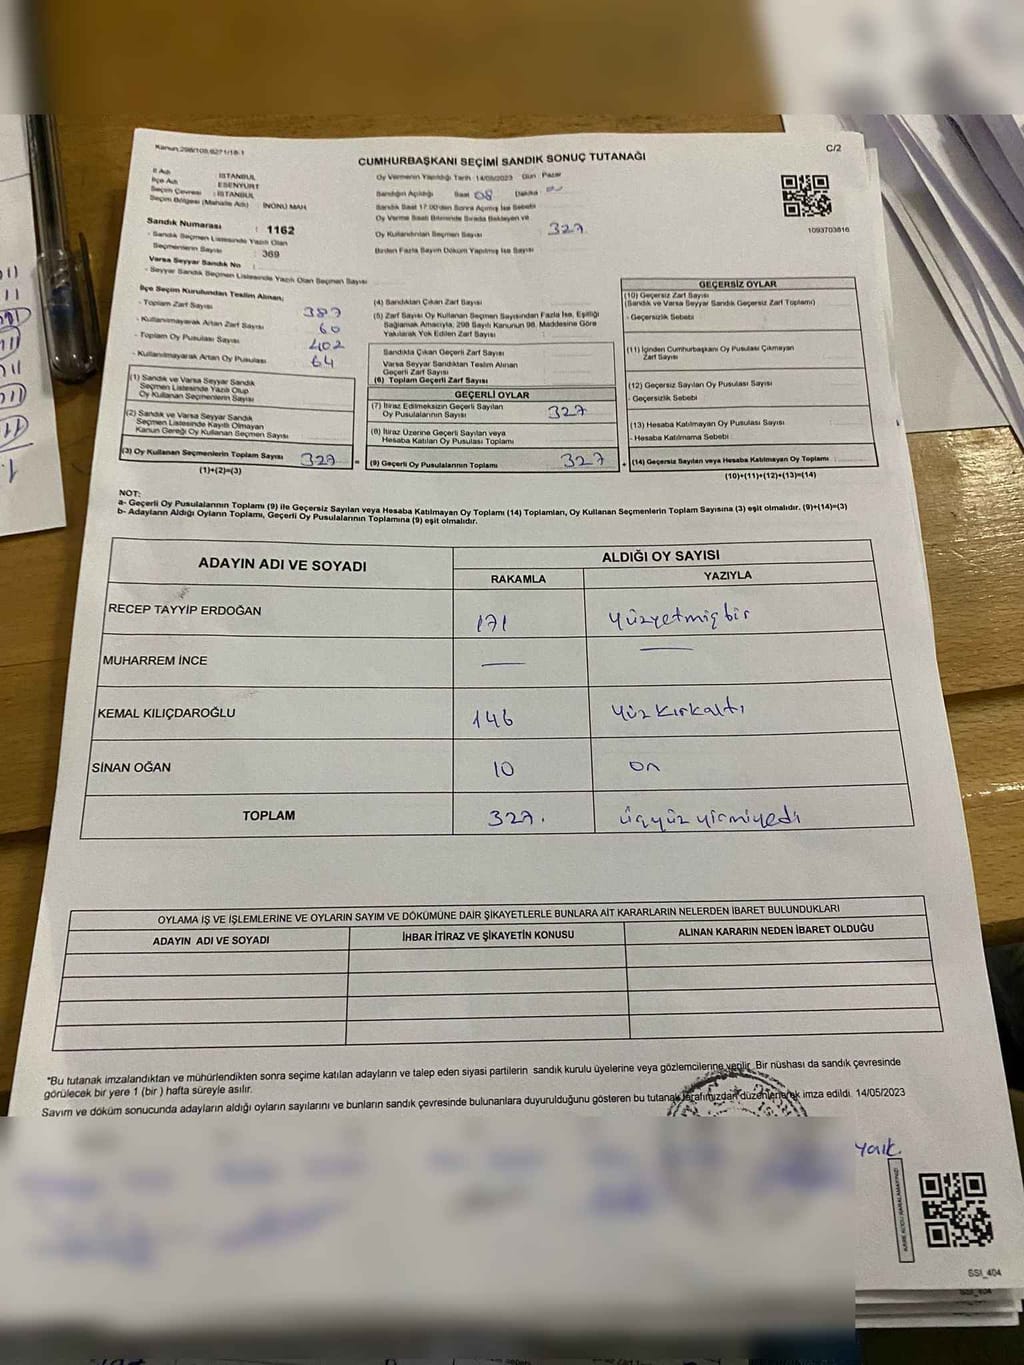 Kanun:298/105,6271/18-1
C/2
CUMHURBAŞKANI SEÇİMİ SANDIK SONUÇ TUTANAĞI
İl Adı : İSTANBUL
İlçe Adı : ESENYURT
Seçim Çevresi : İSTANBUL
Seçim Bölgesi (Mahalle Adı) : İNÖNÜ MAH
Sandık Numarası : 1162
- Sandık Seçmen Listesinde Yazılı Olan
Seçmenlerin Sayısı : 369
Varsa Seyyar Sandık No :
- Seyyar Sandık Seçmen Listesinde Yazılı Olan Seçmen Sayısı
Oy Vermenin Yapıldığı Tarih :14/05/2023 Gün : Pazar
Sandığın Açıldığı Saat 08 Dakika
Sandık Saat 17:00'den Sonra Açılmış İse Sebebi
Oy Verme Saati Bitiminde Sırada Bekleyen ve
Oy Kullandırılan Seçmen Sayısı 327
Birden Fazla Sayım Döküm Yapılmış İse Sayısı
1093703816
İlçe Seçim Kurulundan Teslim Alınan;
- Toplam Zarf Sayısı 387
- Kullanılmayarak Artan Zarf Sayısı 60
- Toplam Oy Pusulası Sayısı 402
- Kullanılmayarak Artan Oy Pusulası 64
(1) Sandık ve Varsa Seyyar Sandık
Seçmen Listesinde Yazılı Olup
Oy Kullanan Seçmenlerin Sayısı
(2) Sandık ve Varsa Seyyar Sandık
Seçmen Listesinde Kayıtlı Olmayan
Kanun Gereği Oy Kullanan Seçmen Sayısı
(3) Oy Kullanan Seçmenlerin Toplam Sayısı 327
(1)+(2)=(3)
(4) Sandıktan Çıkan Zarf Sayısı
(5) Zarf Sayısı Oy Kullanan Seçmen Sayısından Fazla İse, Eşitliği
Sağlamak Amacıyla, 298 Sayılı Kanunun 98. Maddesine Göre
Yakılarak Yok Edilen Zarf Sayısı
Sandıkta Çıkan Geçerli Zarf Sayısı
Varsa Seyyar Sandıktan Teslim Alınan
Geçerli Zarf Sayısı
(6) Toplam Geçerli Zarf Sayısı
GEÇERLİ OYLAR
(7) İtiraz Edilmeksizin Geçerli Sayılan
Oy Pusulalarının Sayısı 327
(8) İtiraz Üzerine Geçerli Sayılan veya
Hesaba Katılan Oy Pusulası Toplamı
= (9) Geçerli Oy Pusulalarının Toplamı 327
GEÇERSİZ OYLAR
(10) Geçersiz Zarf Sayısı
(Sandık ve Varsa Seyyar Sandık Geçersiz Zarf Toplamı)
- Geçersizlik Sebebi
(11) İçinden Cumhurbaşkanı Oy Pusulası Çıkmayan
Zarf Sayısı
(12) Geçersiz Sayılan Oy Pusulası Sayısı
- Geçersizlik Sebebi
(13) Hesaba Katılmayan Oy Pusulası Sayısı
- Hesaba Katılmama Sebebi
+ (14) Geçersiz Sayılan veya Hesaba Katılmayan Oy Toplamı
(10)+(11)+(12)+(13)=(14)
NOT:
a- Geçerli Oy Pusulalarının Toplamı (9) ile Geçersiz Sayılan veya Hesaba Katılmayan Oy Toplamı (14) Toplamları, Oy Kullanan Seçmenlerin Toplam Sayısına (3) eşit olmalıdır. (9)+(14)=(3)
b- Adayların Aldığı Oyların Toplamı, Geçerli Oy Pusulalarının Toplamına (9) eşit olmalıdır.
ADAYIN ADI VE SOYADI ALDIĞI OY SAYISI
RAKAMLA YAZIYLA
RECEP TAYYİP ERDOĞAN 171 yüzyetmişbir
MUHARREM İNCE — —
KEMAL KILIÇDAROĞLU 146 yüzkırkaltı
SİNAN OĞAN 10 on
TOPLAM 327. üçyüzyirmiyedi
OYLAMA İŞ VE İŞLEMLERİNE VE OYLARIN SAYIM VE DÖKÜMÜNE DAİR ŞİKAYETLERLE BUNLARA AİT KARARLARIN NELERDEN İBARET BULUNDUKLARI
ADAYIN ADI VE SOYADI İHBAR İTİRAZ VE ŞİKAYETİN KONUSU ALINAN KARARIN NEDEN İBARET OLDUĞU
*Bu tutanak imzalandıktan ve mühürlendikten sonra seçime katılan adayların ve talep eden siyasi partilerin sandık kurulu üyelerine veya gözlemcilerine verilir. Bir nüshası da sandık çevresinde
görülecek bir yere 1 (bir ) hafta süreyle asılır.
Sayım ve döküm sonucunda adayların aldığı oyların sayılarını ve bunların sandık çevresinde bulunanlara duyurulduğunu gösteren bu tutanak tarafımızdan düzenlenerek imza edildi. 14/05/2023
KARE KODU KARALAMAYINIZ!
SSI_404